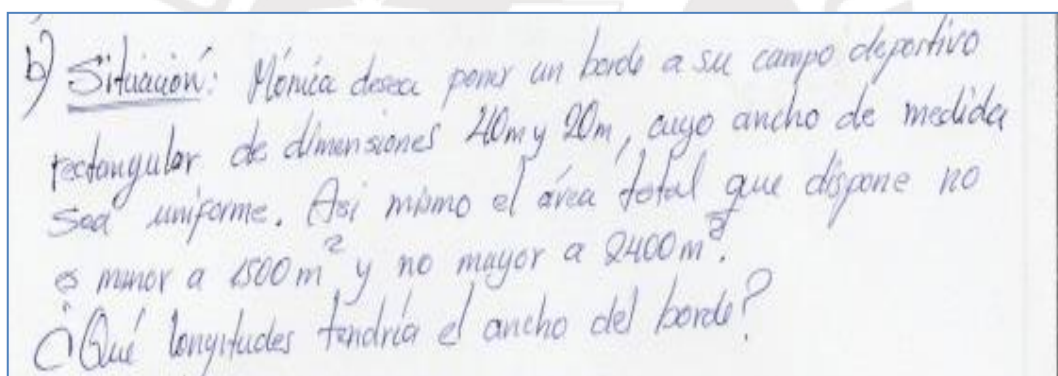 b) Situación: Mónica desea poner un borde a su campo deportivo
rectangular de dimensiones 40m y 20m, cuyo ancho de medida
sea uniforme. Asi mismo el área total que dispone no
es menor a 1500 m² y no mayor a 2400 m².
¿Qué longitudes tendría el ancho del borde?